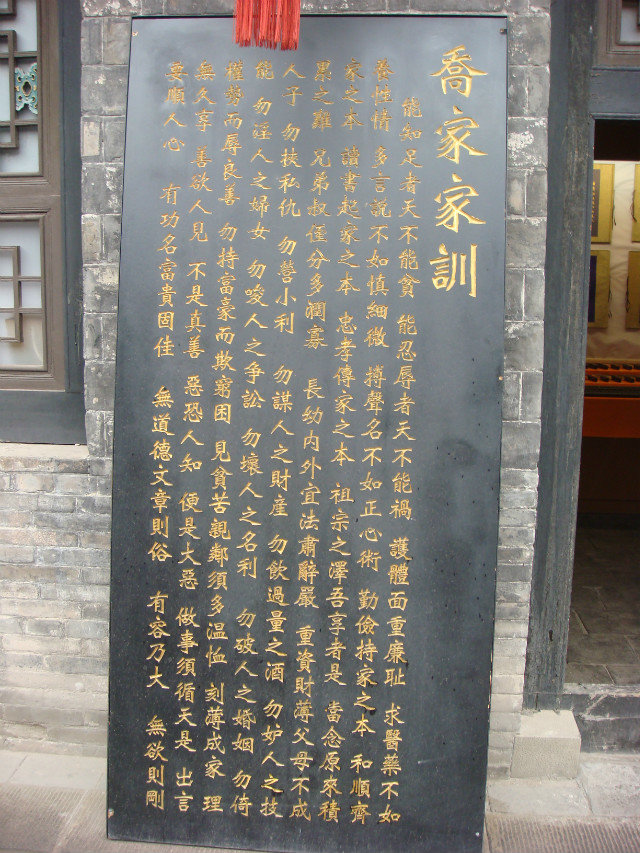 喬家家訓
能知足者天不能貧 能忍辱者天不能禍 護體面重廉恥 求醫藥不如
養性情 多言說不如慎細微 搏聲名不如正心術 勤儉持家之本 和順齊
家之本 讀書起家之本 忠孝傳家之本 祖宗之澤吾享者是 當念原來積
累之難 兄弟叔侄分多潤寡 長幼內外宜法肅辭嚴 重資財薄父母不成
人子 勿挾私仇 勿營小利 勿謀人之財產 勿飲過量之酒 勿妒人之技
能 勿淫人之婦女 勿唆人之争訟 勿壞人之名利 勿破人之婚姻 勿倚
權勢而辱良善 勿持富豪而欺窮困 見貧苦親鄰須多温恤 刻薄成家 理
無久享 善欲人見 不是真善 惡恐人知 便是大惡 做事須循天是 出言
要順人心 有功名富貴固佳 無道德文章則俗 有容乃大 無欲則剛